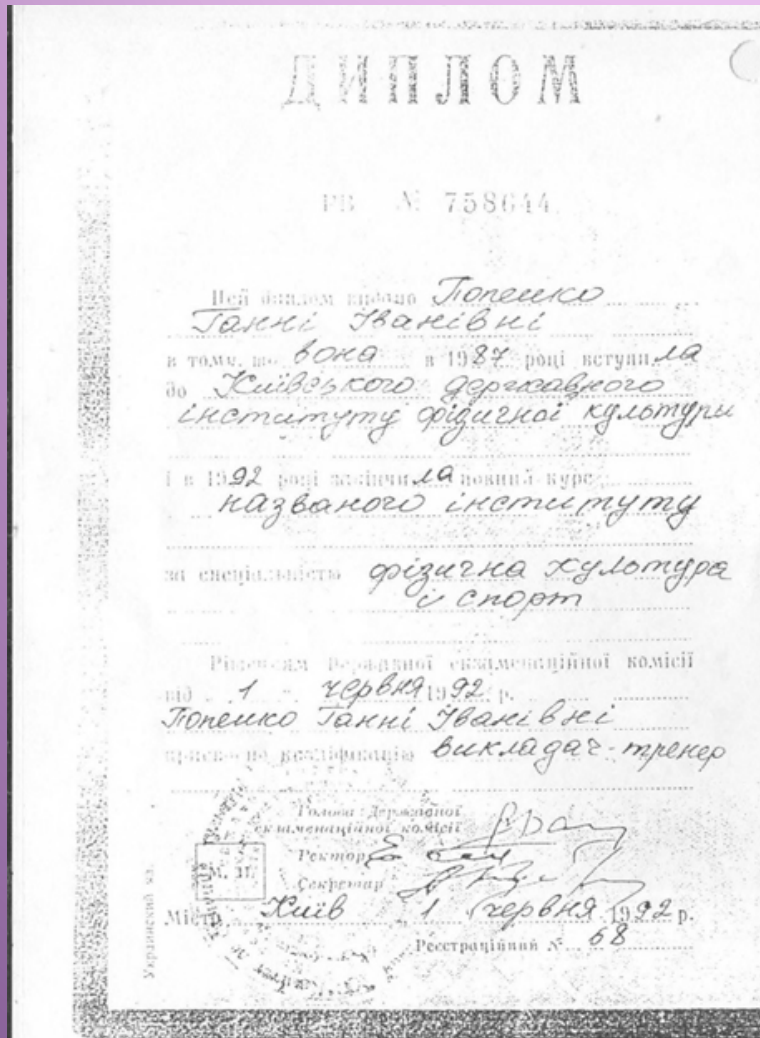 ДИПЛОМ
РВ № 758644
Цей диплом видано Попенко
Ганні Іванівні
в тому, що вона в 1987 році вступила
до Київського державного
інституту фізичної культуры
і в 1992 році закінчила повний курс
названого інституту
за спеціальністю фізична культура
і спорт
Рішенням Державної екзаменаційної комісії
від 1 червня 1992 р.
Попенко Ганні Іванівні
присвоєно кваліфікацію викладач-тренер
Голова Державної
екзаменаційної комісії
Ректор
М. П.
Секретар
Місто Київ 1 червня 1992 р.
Реєстраційний № 68
Украинский яз.